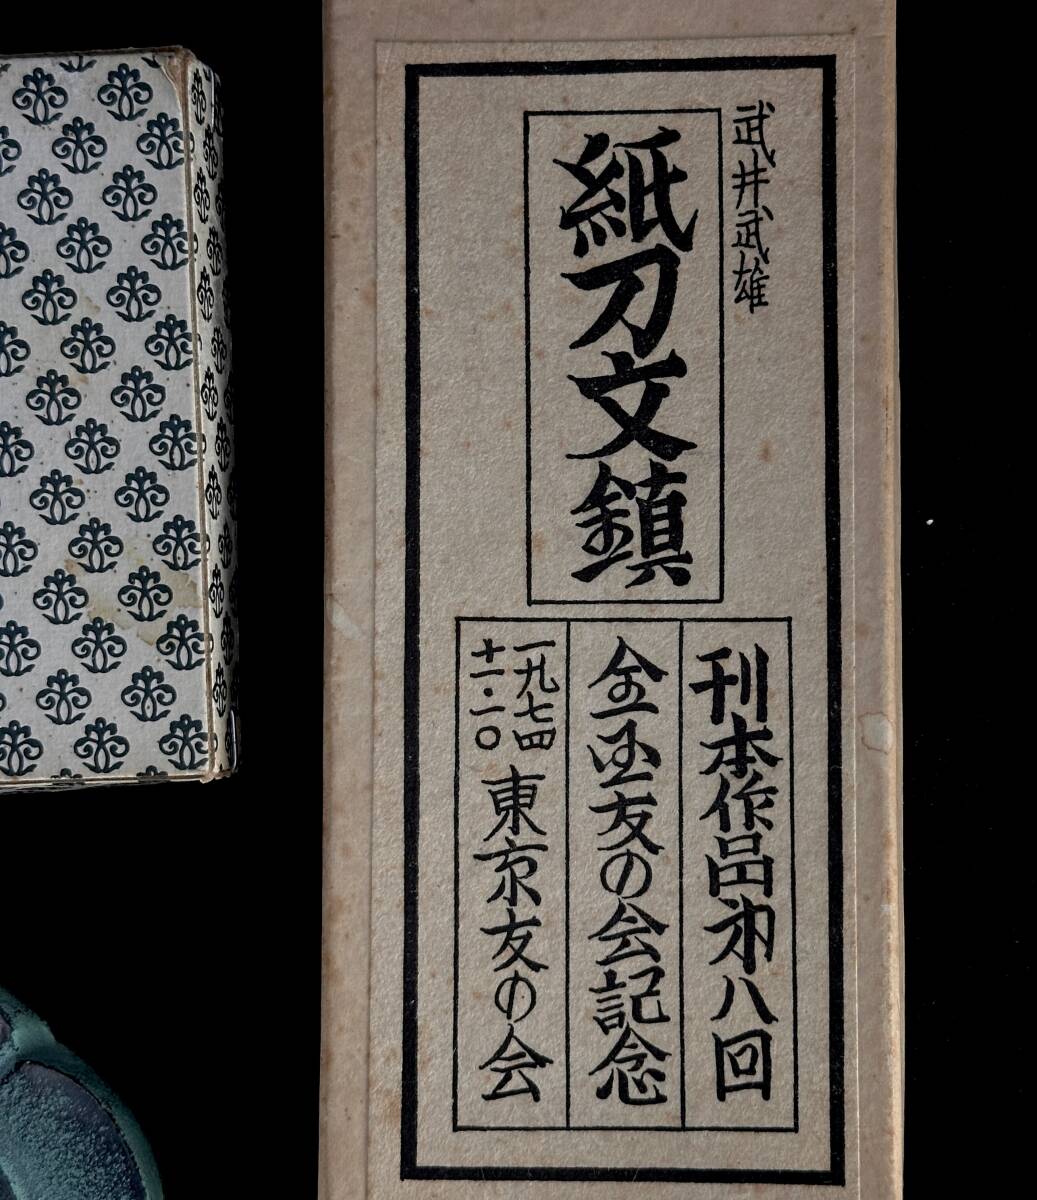 武井武雄
紙刀文鎮
刊本作品㐧八回
全国友の会記念
一九七四
十一・二〇
東京友の会